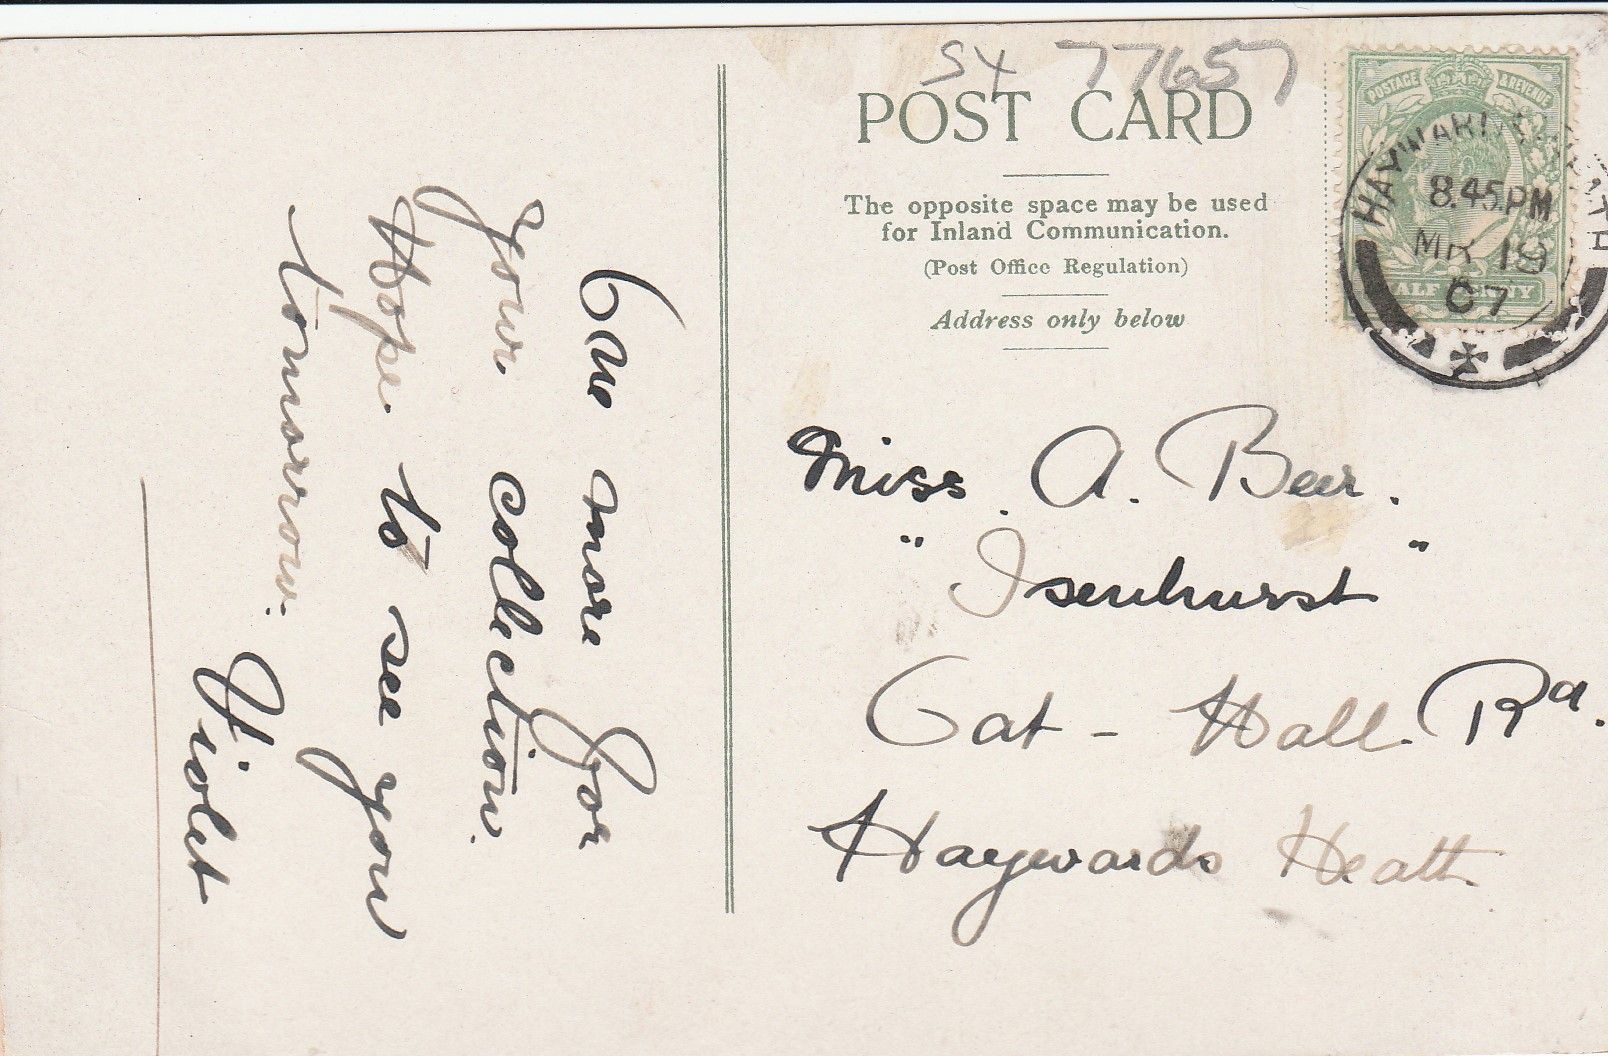 One more for
your collection.
Hope to see you
tomorrow.
Violet
SX 77657
POST CARD
The opposite space may be used
for Inland Communication.
(Post Office Regulation)
Address only below
POSTAGE & REVENUE
HALF PENNY
HAYWARDS HEATH
8.45.PM
MR 18
07
Miss. A. Beer.
"Isenhurst"
Oat-Hall Rd.
Haywards Heath.